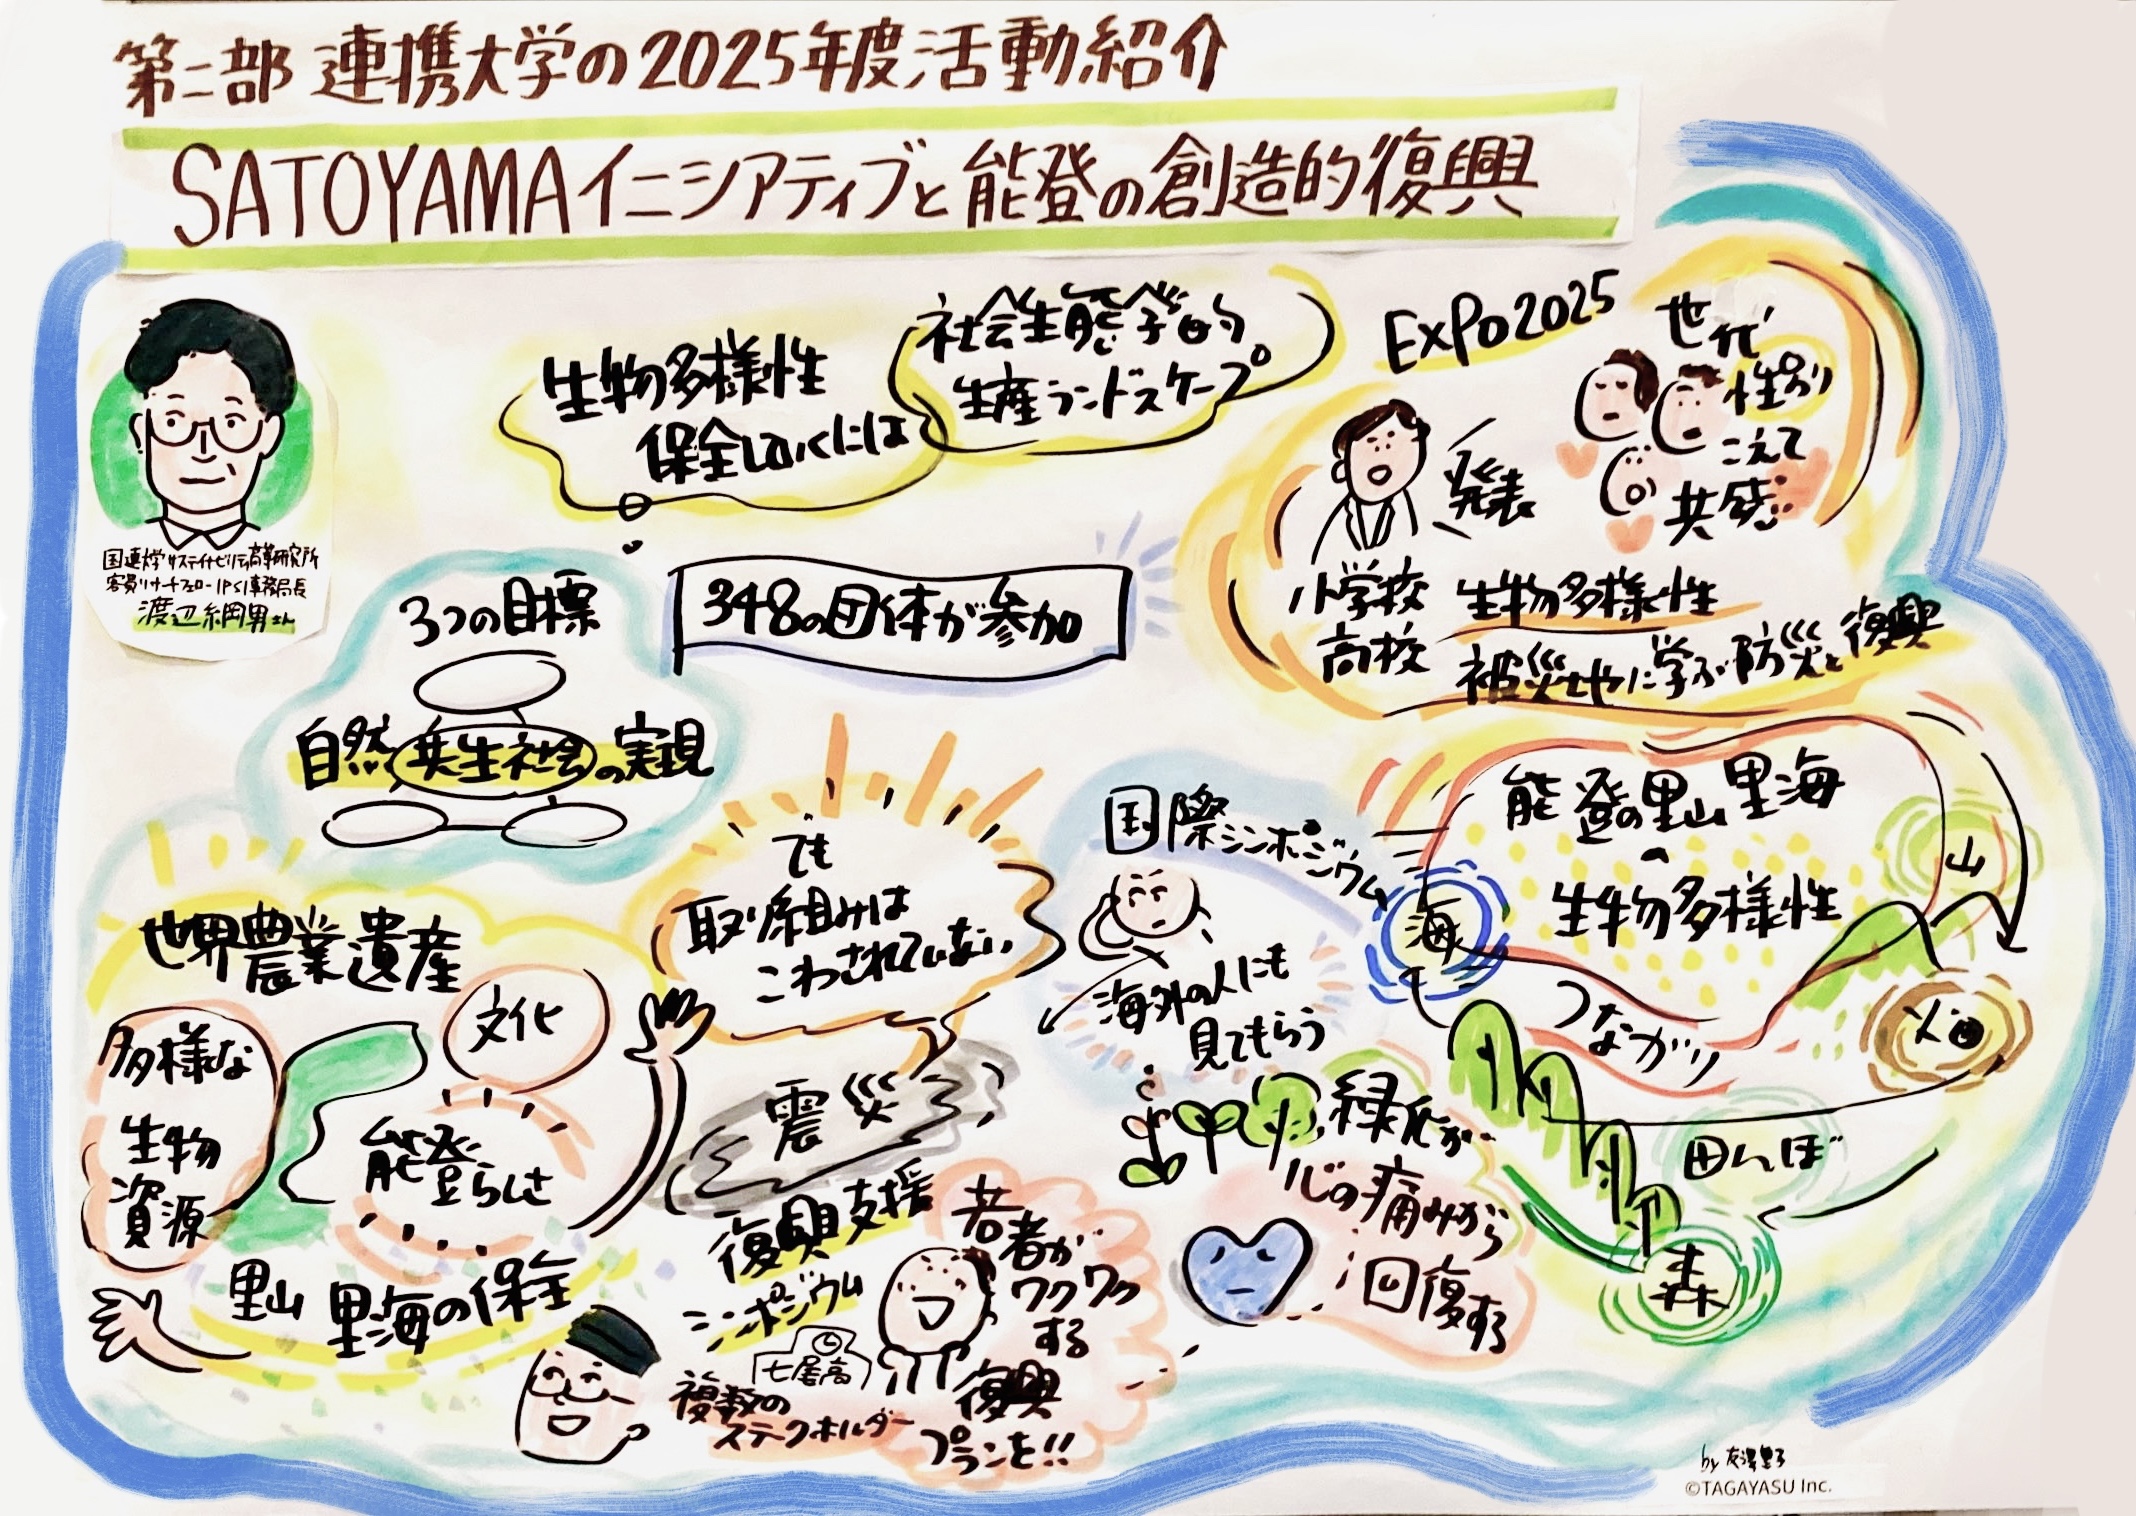 第二部 連携大学の2025年度活動紹介
SATOYAMAイニシアティブと能登の創造的復興
国連大学サステイナビリティ高等研究所
客員リサーチフェロー IPSI事務局長
渡辺綱男さん
生物多様性
保全していくには
社会生態学的
生産ランドスケープ
EXPO2025
発表
世代
性別
こえて
共感
小学校
高校
生物多様性
被災地に学ぶ防災と復興
3つの目標
自然共生社会の実現
348の団体が参加
世界農業遺産
多様な
生物
資源
文化
能登らしさ
里山 里海の保全
でも
取り組みは
こわされていない
震災
復興支援
シンポジウム
七尾高
複数の
ステークホルダー
若者が
ワクワク
する
復興
プランを!!
国際シンポジウム
海外の人にも
見てもらう
緑化が
心の痛みから
回復する
能登の里山里海
の
生物多様性
つながり
海
山
畑
田んぼ
森
by
©TAGAYASU Inc.